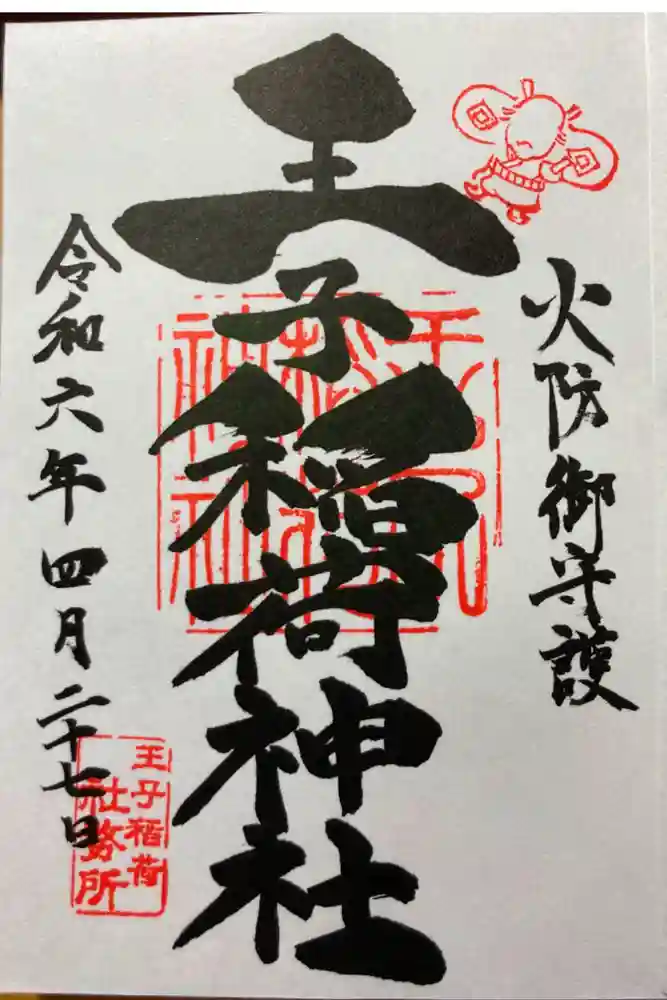 火防御守護
王子稲荷神社
令和六年四月二十七日
王子稲荷
社務所